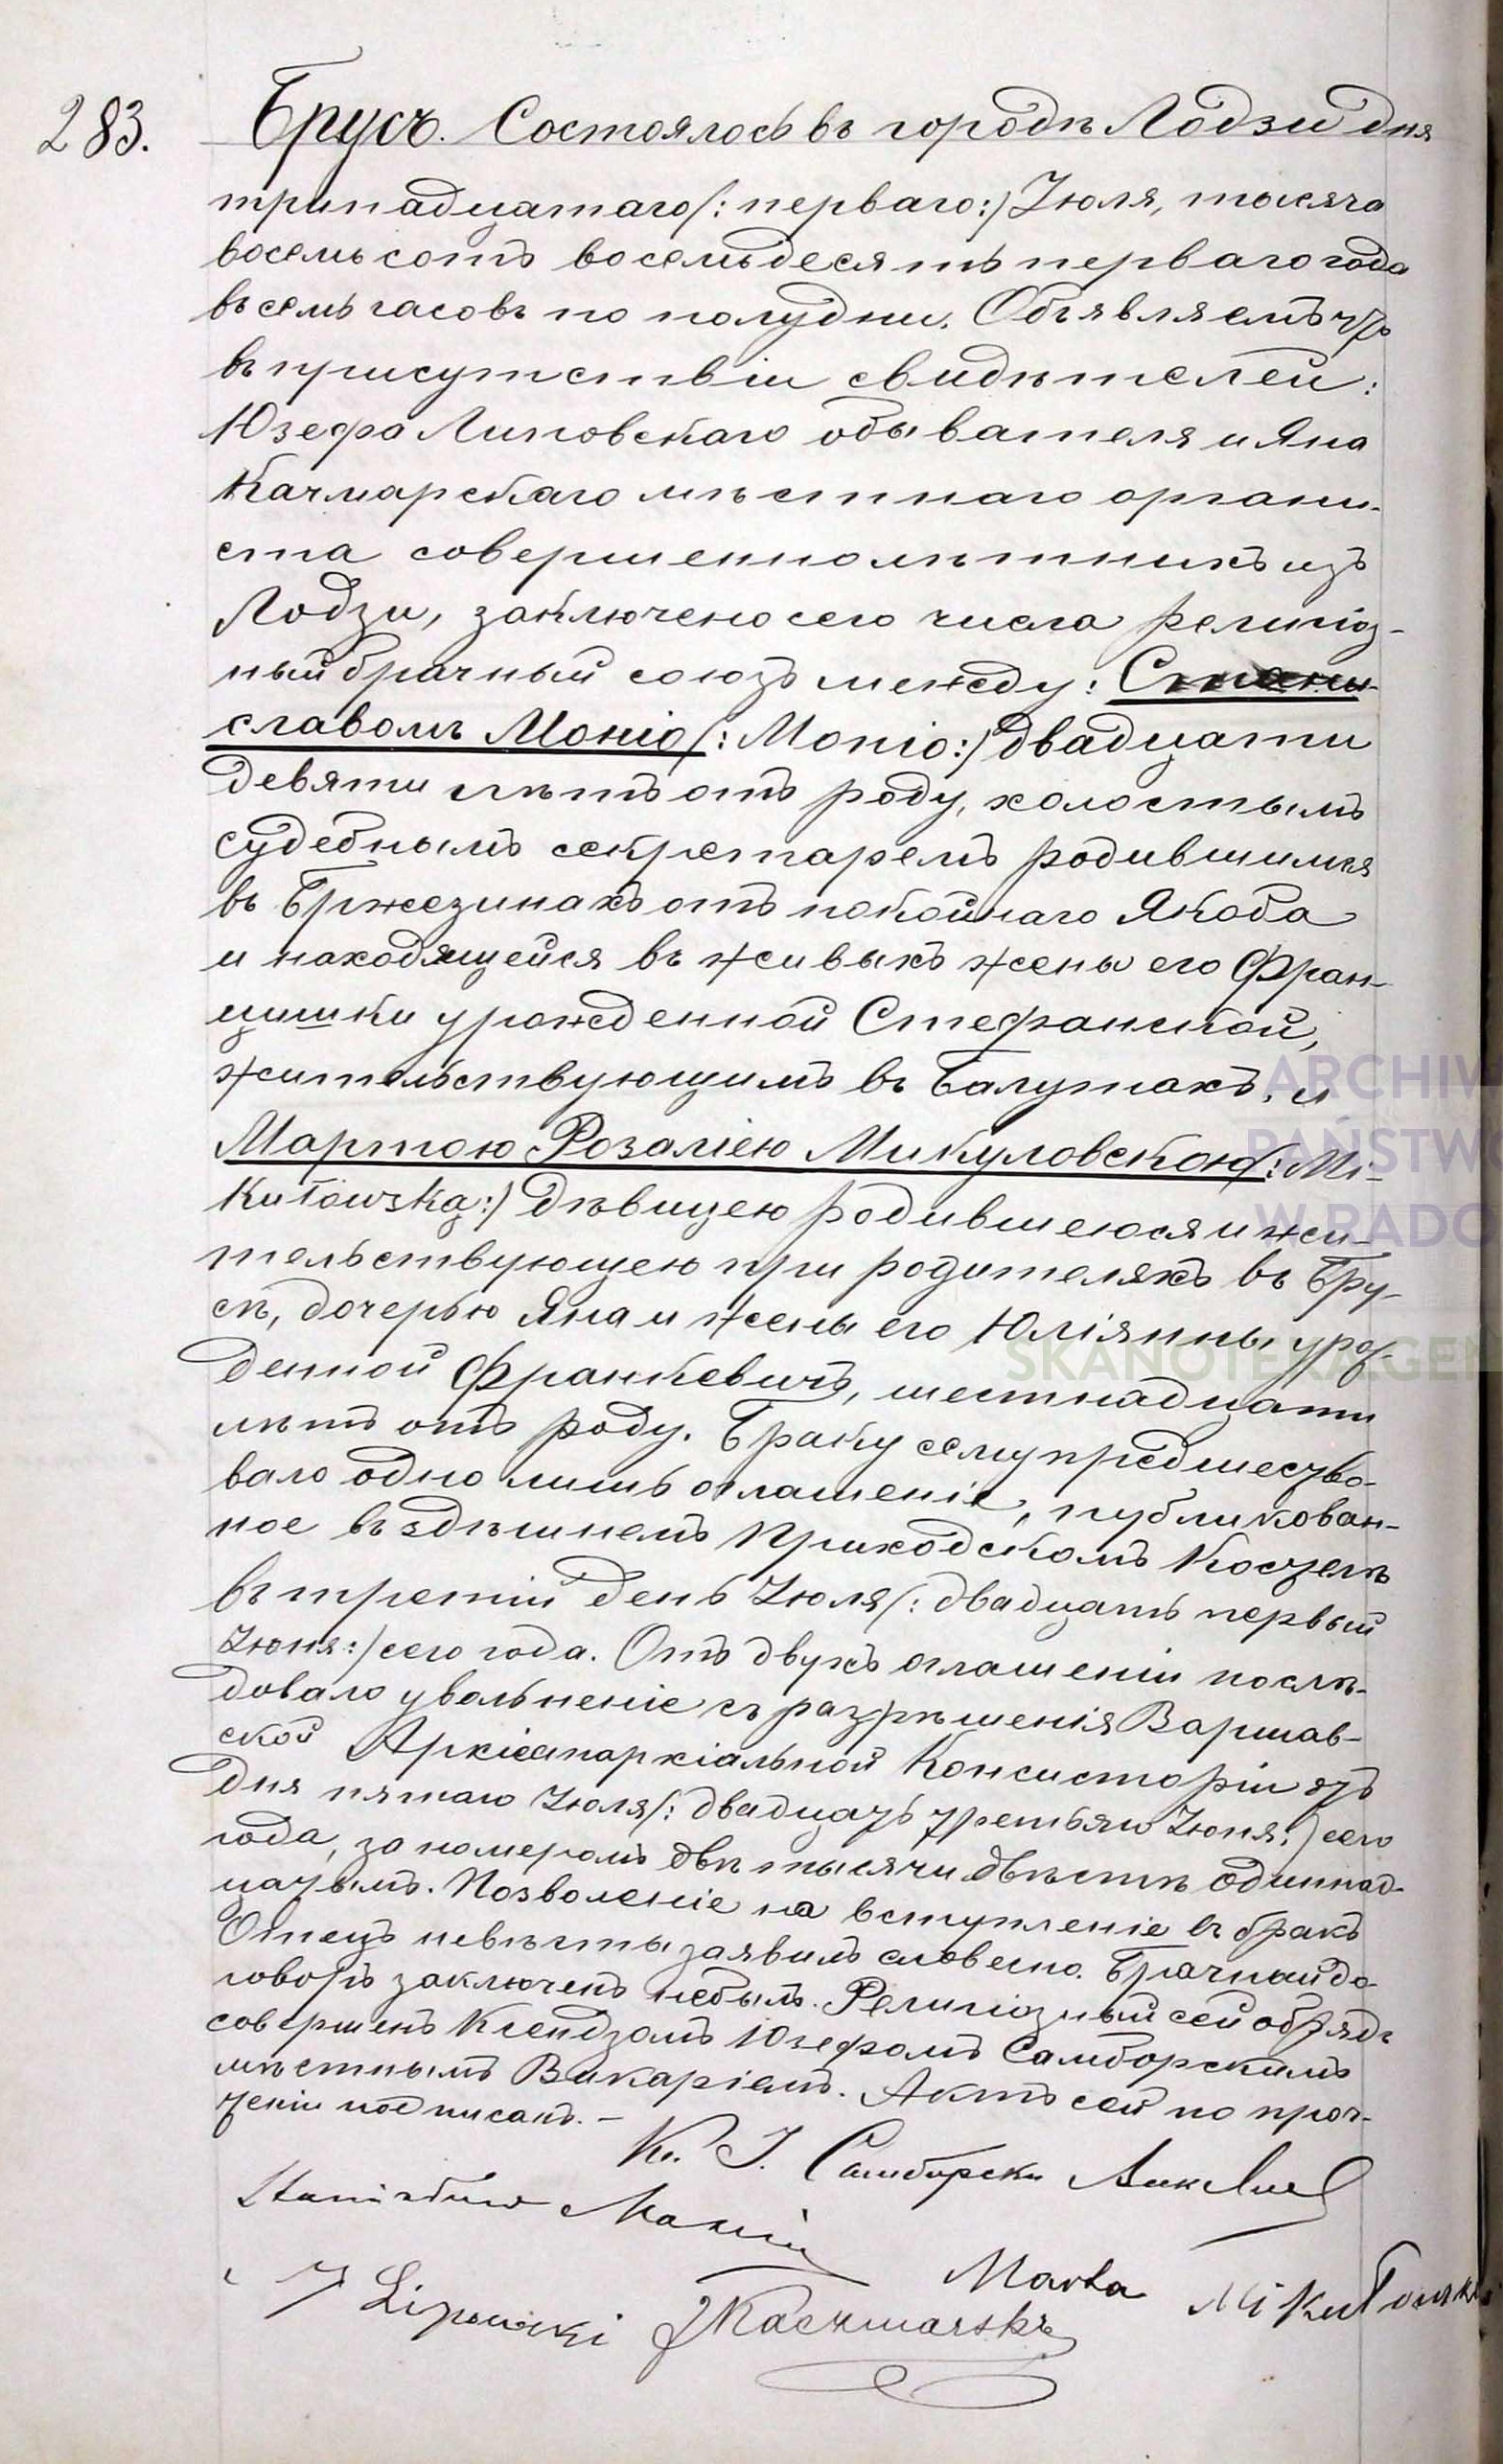 283.
Брусъ. Состоялось въ городѣ Лодзи дня
тринадцатаго /: перваго :/ Іюля, тысяча
восемьсотъ восемьдесятъ перваго года
въ семь часовъ по полудни. Объявляемъ что
въ присутствіи свидѣтелей:
Юзефа Липовскаго обывателя и Яна
Качмарскаго мѣстнаго органи-
ста совершеннолѣтнихъ изъ
Лодзи, заключено сего числа религіоз-
ный брачный союзъ между: Стани-
славомъ Моніо /: Monio :/ двадцати
девяти лѣтъ отъ роду, холостымъ
судебнымъ секретаремъ родившимся
въ Бржезинахъ отъ покойнаго Якоба
и находящейся въ живыхъ жены его Фран-
цишки урожденной Стефанской,
жительствующимъ въ Балутахъ, и
Мартою Розаліею Микуловскою /: Mi-
kułowską :/ дѣвицею родившеюся и жи-
тельствующею при родителяхъ въ Бру-
сѣ, дочерью Яна и жены его Юліянны урож-
денной Франкевичъ, шестнадцати
лѣтъ отъ роду. Браку сему предшество-
вало одно лишь оглашеніе, публикован-
ное въ здѣшнемъ Приходскомъ Костелѣ
въ третій день Іюля /: двадцать первый
Іюня :/ сего года. Отъ двухъ оглашеніи послѣ-
довало увольненіе съ разрѣшенія Варшав-
ской Архіепархіальной Консисторіи отъ
дня пятаго Іюля /: двадцать третьяго Іюня :/ сего
года, за номеромъ двѣ тысячи двѣстѣ одиннад-
цатымъ. Позволеніе на вступленіе въ бракъ
Отецъ невѣсты заявилъ словесно. Брачный до-
говоръ заключенъ небылъ. Религіозный сей обрядъ
совершенъ Ксендзомъ Юзефомъ Самборскимъ
мѣстнымъ Викаріемъ. Актъ сей по проч-
теніи подписанъ. –
Кс. І. Самборски
Stanisław Monio
Marta Mikułowska
J Lipowski JKaczmarski
ARCHIW
PAŃSTWO
W RADO
SKANOTEKA.GEN